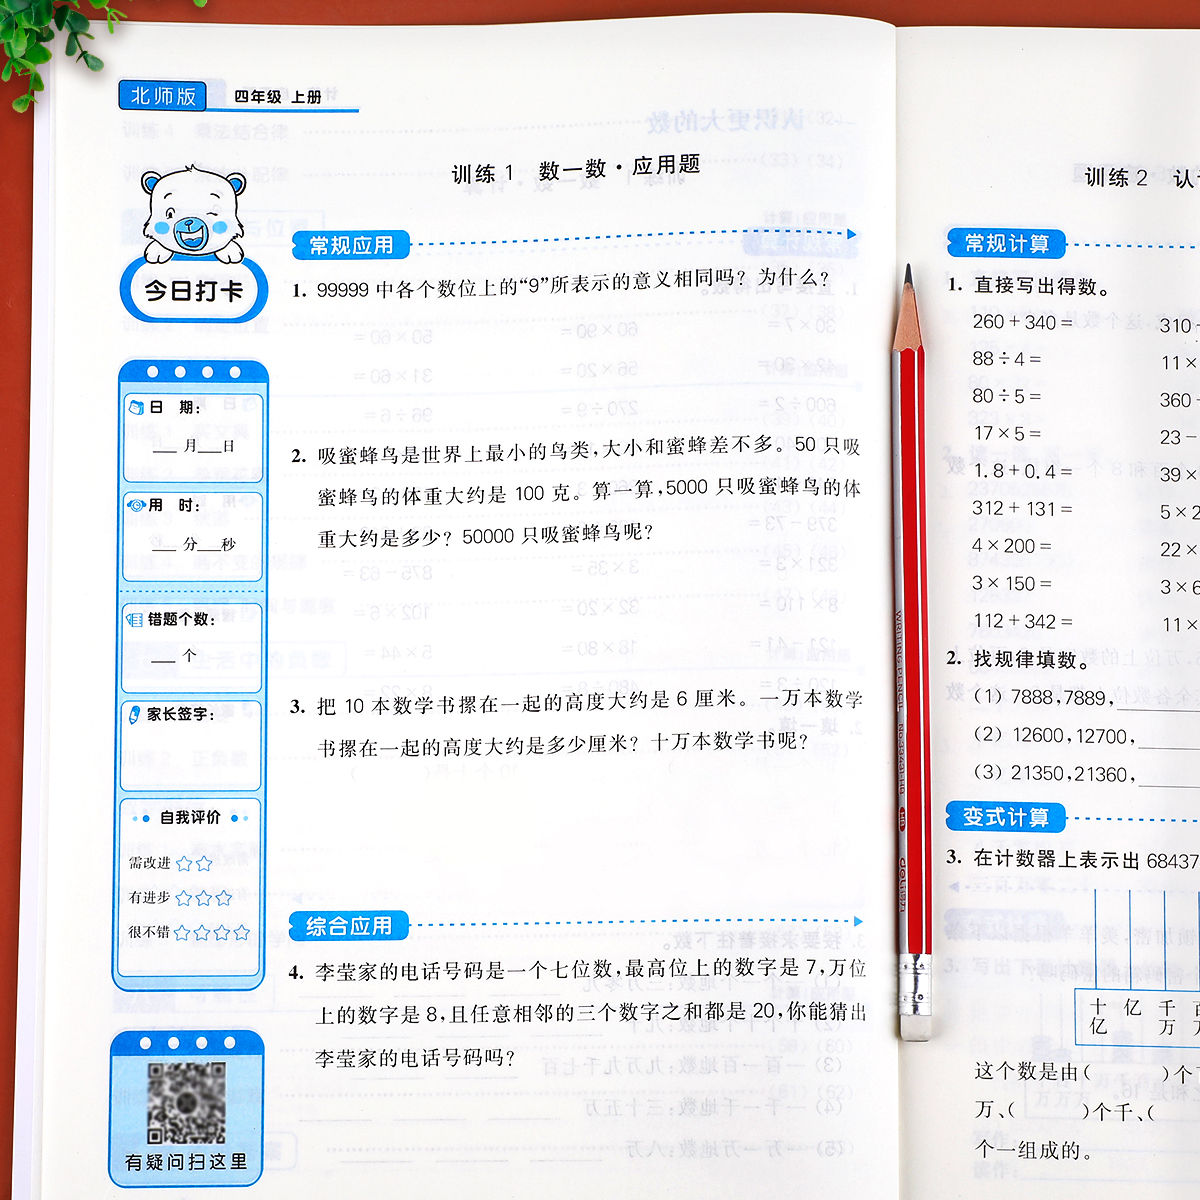 北师版 四年级 上册
训练 1 数一数·应用题
今日打卡
日 期：
月 日
用 时：
分 秒
错题个数：
个
家长签字：
自我评价
需改进
有进步
很不错
有疑问扫这里
常规应用
1. 99999 中各个数位上的“9”所表示的意义相同吗？为什么？
2. 吸蜜蜂鸟是世界上最小的鸟类，大小和蜜蜂差不多。50 只吸
蜜蜂鸟的体重大约是 100 克。算一算，5000 只吸蜜蜂鸟的体
重大约是多少？50000 只吸蜜蜂鸟呢？
3. 把 10 本数学书摞在一起的高度大约是 6 厘米。一万本数学
书摞在一起的高度大约是多少厘米？十万本数学书呢？
综合应用
4. 李莹家的电话号码是一个七位数，最高位上的数字是 7，万位
上的数字是 8，且任意相邻的三个数字之和都是 20，你能猜出
李莹家的电话号码吗？
训练 2 认
常规计算
1. 直接写出得数。
260＋340＝ 310
88÷4＝ 11×
80÷5＝ 360
17×5＝ 23－
1.8＋0.4＝ 39×
312＋131＝ 5×2
4×200＝ 22×
3×150＝ 3×6
112＋342＝ 11×
2. 找规律填数。
（1）7888，7889，
（2）12600，12700，
（3）21350，21360，
变式计算
3. 在计数器上表示出 68437
十亿 亿 千万
这个数是由（ ）个
万、（ ）个千、（
个一组成的。
WRITING PENCIL No.33431-HB
deli得力